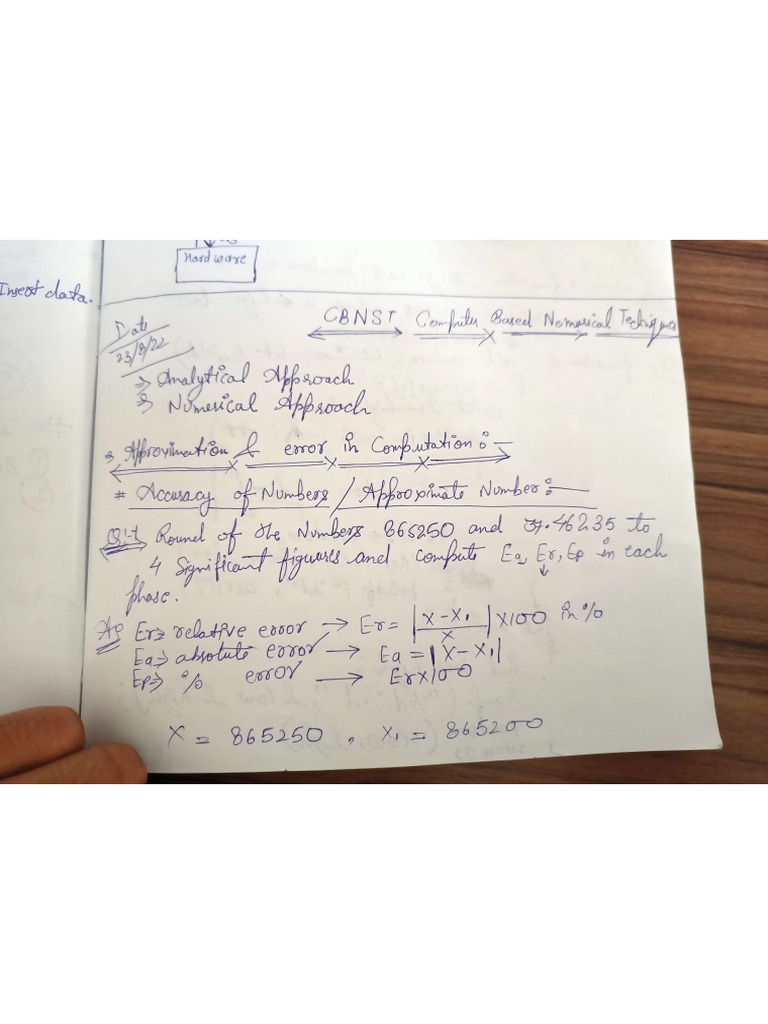 Hardware
Insert data.
Date
23/9/22
CBNST Computer Based Numerical Techniques
→ Analytical Approach
→ Numerical Approach
→ Approximation & error in Computation :-
# Accuracy of Numbers / Approximate Number :-
Q1-1 Round of the Numbers 865250 and 37.46235 to
4 Significant figuares and compute Ea, Er, Ep in each
phase.
Er ⇒ relative error → Er = |X-X₁/X| X100 in %
Ea ⇒ absolute error → Ea = |X-X₁|
Ep ⇒ % error → Er X 100
X = 865250 , X₁ = 865200